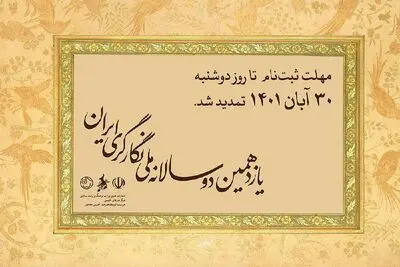 مهلت ثبت‌نام تا روز دوشنبه
۳۰ آبان ۱۴۰۱ تمدید شد.
یازدهمین دوسالانه ملی نگارگری ایران